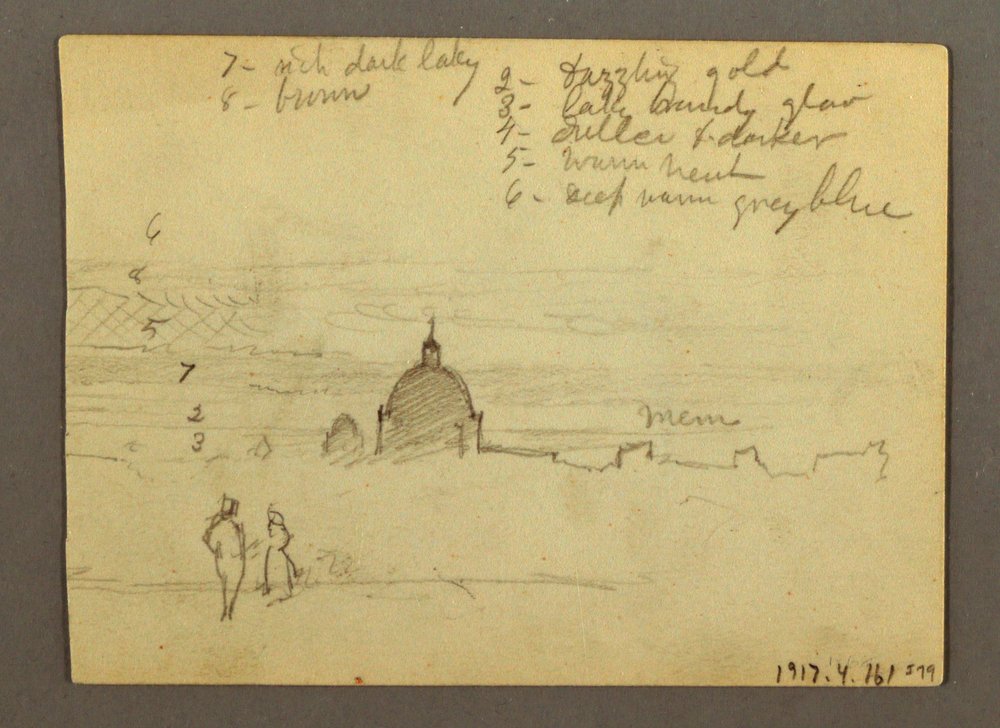 7- rich dark laky
8- brown
2- dazzling gold
3- laky brandy glow
4- duller & darker
5- warm neut
6- deep warm grey blue
6
8
5
7
2
3
1917.4.161 579